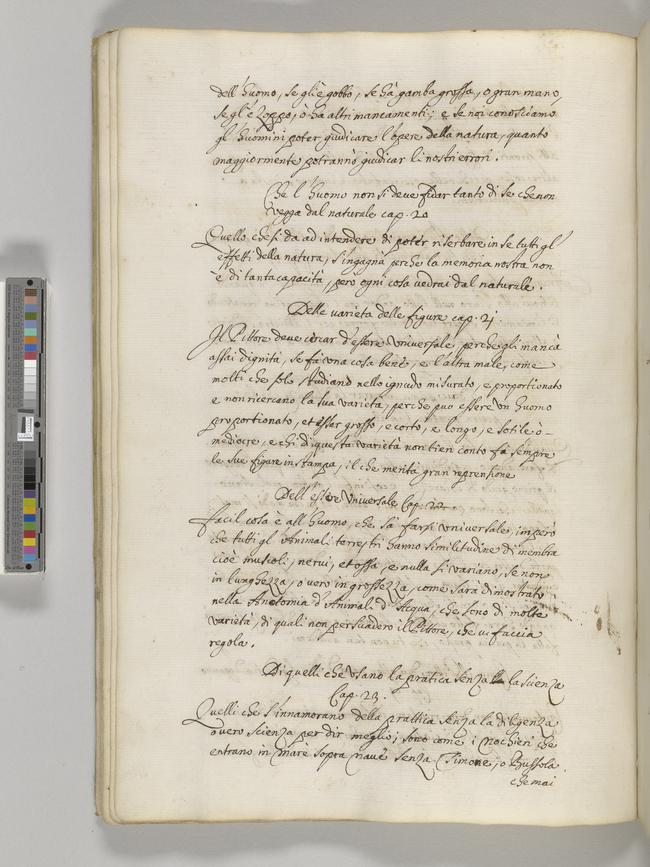 dell'huomo, se gli è gobbo, se hà gamba grossa, o gran mano,
se gl'è Zoppo, ò ha altri mancamenti; e se noi conosciamo
gl'huomini poter giudicare l'opere della natura, quanto
maggiormente potrannò giudicar li nostri errori.
Che l'huomo non si deve fidar tanto di se che non
vegga dal naturale cap. 20
Quello che si da ad intendere di poter riserbare in se tutti gl'
effetti della natura, s'ingagna perche la memoria nostra non
è di tanta capacità, però ogni cosa vedrai dal naturale.
Delle varietà delle figure cap. 21
Il Pittore deve cercar d'essere Universale, perche gli mancà
assai dignità, se fà una cosa bene, e l'altra male, come
molti che solo studiano nello ignudo misurato, e proportionato
e non ricercano la sua varietà, perche può essere un huomo
proportionato, et essar grosso, e corto, e longo, e sotile ò
mediocre, e chi di questa varietà non tien conto fà sempre
le sue figure in stampa, il che merita gran reprensione
Dell'essere Universale Cap. 22.
facil cosa è all'huomo, che sà farsi universale, imperò
che tutti gl'Animali terrestri hanno similitudine di membra
cioè muscoli, nerui, et ossa, e nulla si variano, se non
in lunghezza, o uero in grossezza, come sarà dimostrato
nella Anotomia d'Animali d'Acqua, che sono di molte
varietà, di quali non persuaderò il Pittore, che vi faccia
regola.
Di quelli che Usano la pratica senza la scienza
Cap. 23.
Quelli che s'innamorano della prattica senza la diligenza
ouero scienza per dir meglio; sono come i Nochieri che
entrano in Mare sopra naue senza Timone, o Bussola
che mai